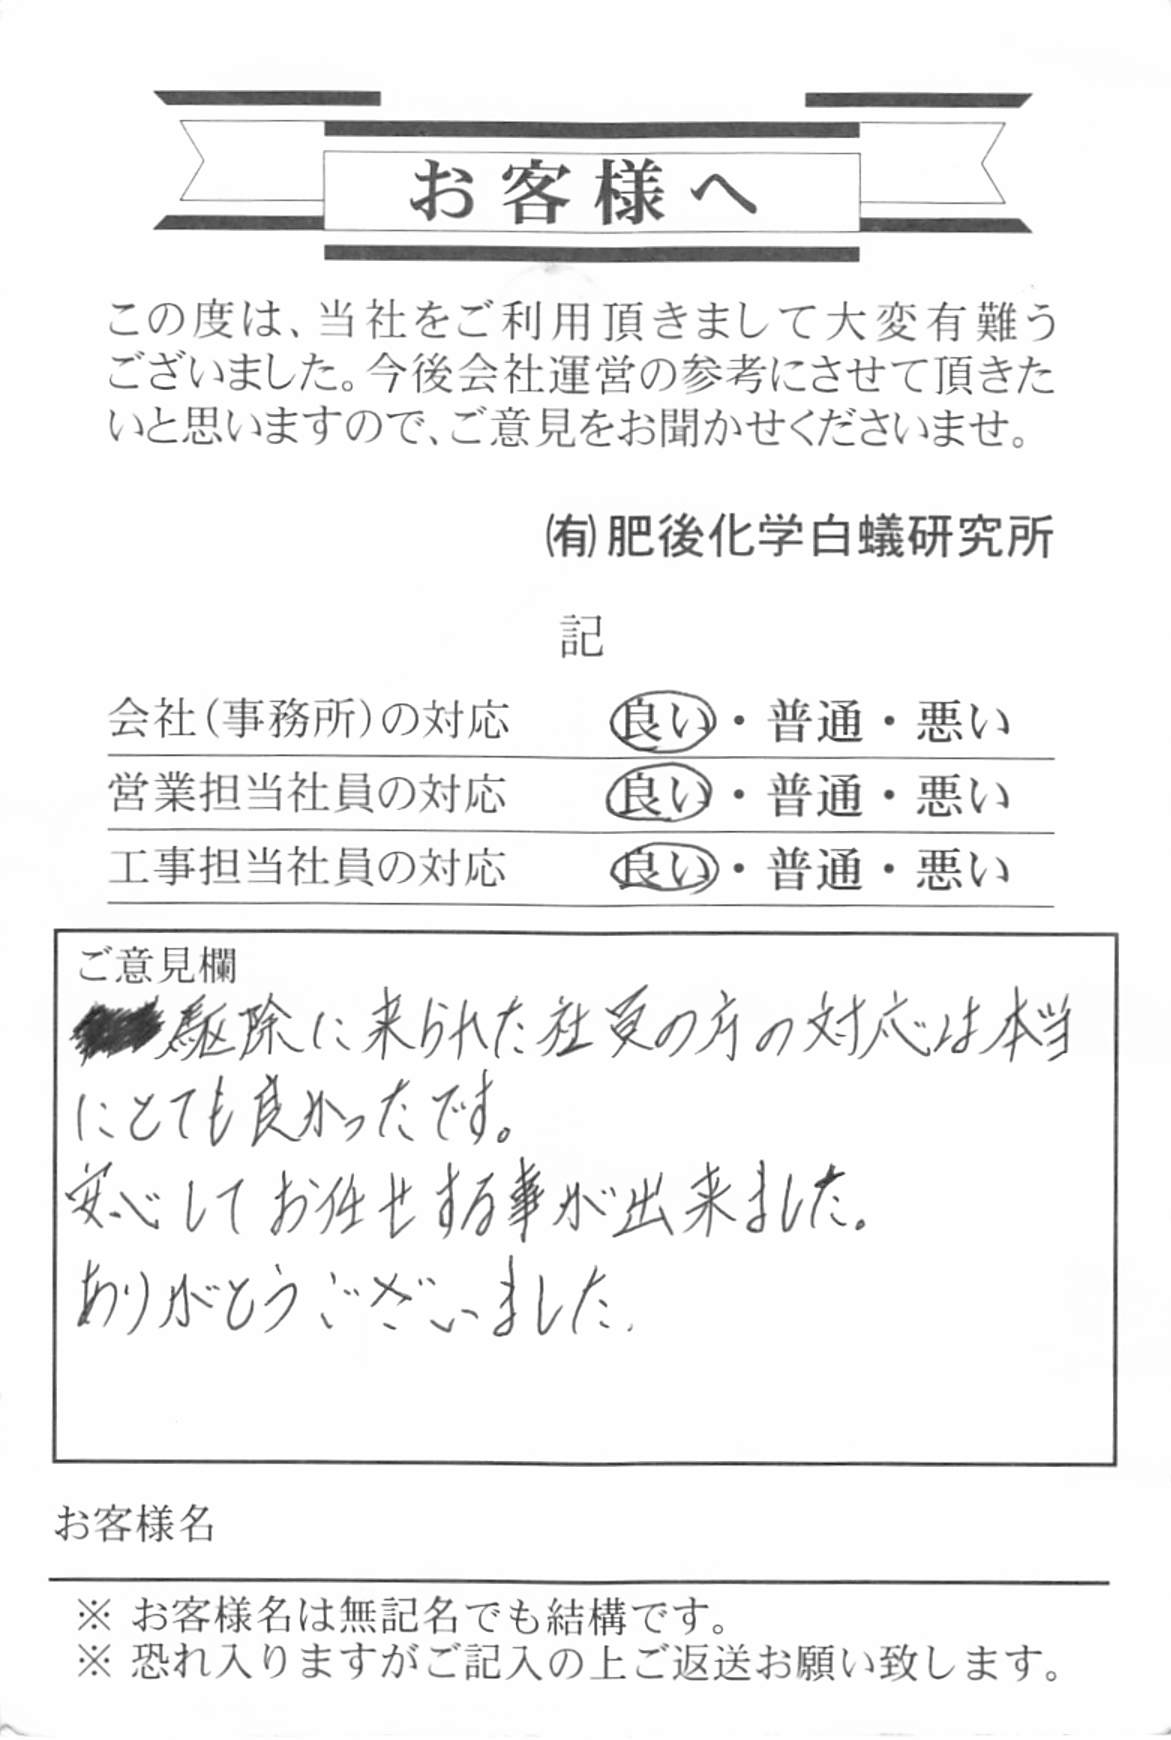 お客様へ
この度は、当社をご利用頂きまして大変有難う
ございました。今後会社運営の参考にさせて頂きた
いと思いますので、ご意見をお聞かせくださいませ。
㈲肥後化学白蟻研究所
記
会社(事務所)の対応 良い・普通・悪い
営業担当社員の対応 良い・普通・悪い
工事担当社員の対応 良い・普通・悪い
ご意見欄
駆除に来られた社員の方の対応は本当
にとても良かったです。
安心してお任せする事が出来ました。
ありがとうございました.
お客様名
※ お客様名は無記名でも結構です。
※ 恐れ入りますがご記入の上ご返送お願い致します。